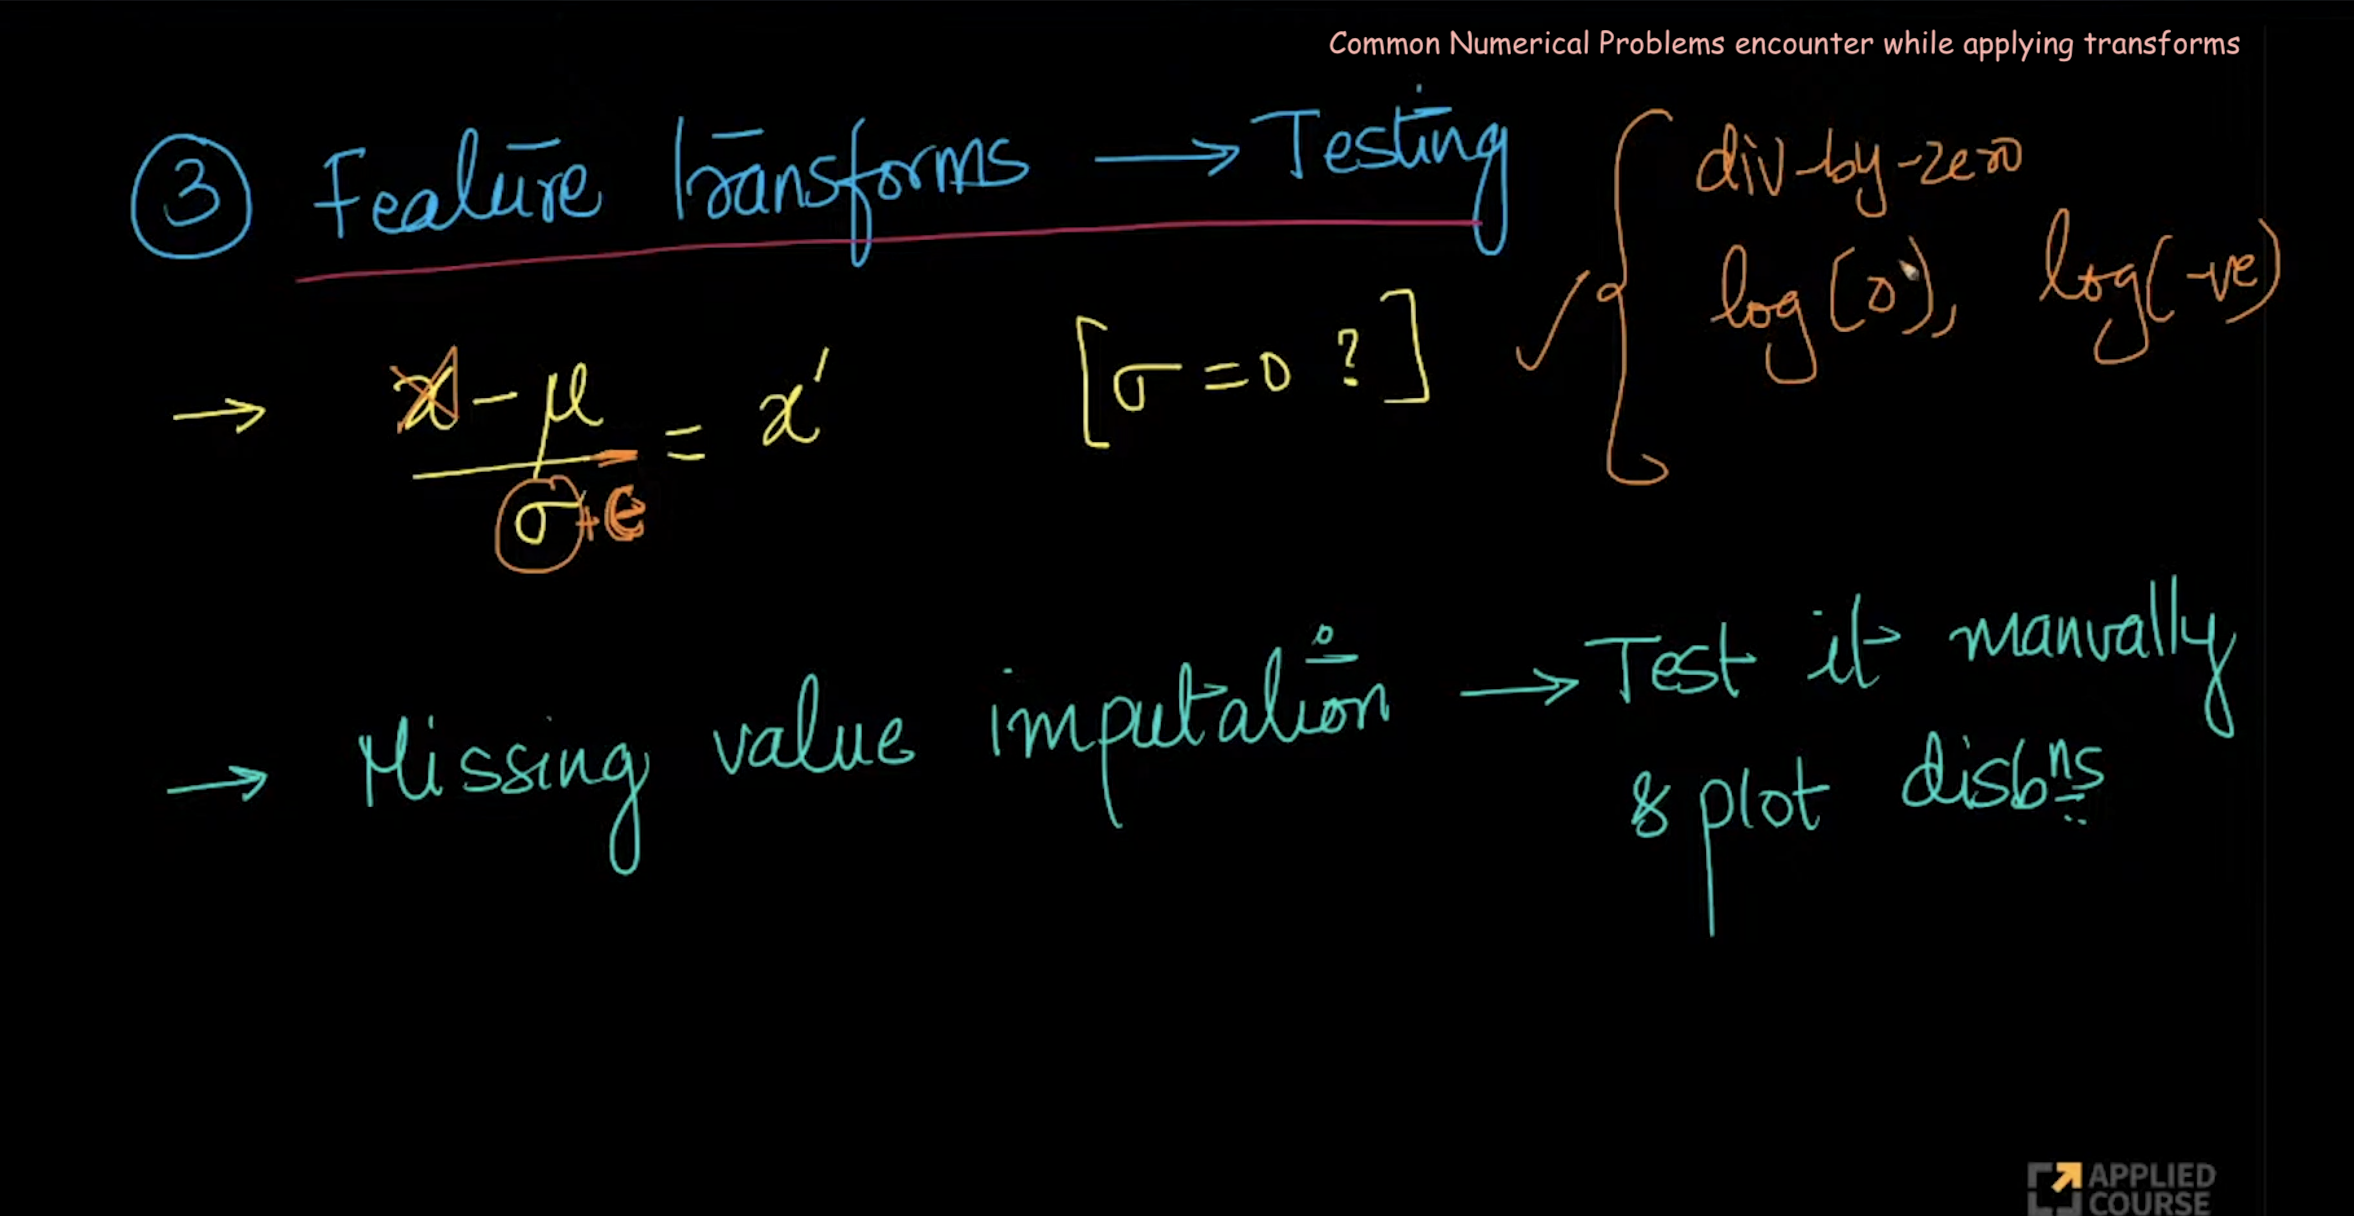 Common Numerical Problems encounter while applying transforms
③ Feature transforms → Testing
div-by-zero
log(0), log(-ve)
→ x - μ / σ + ϵ = x' [σ = 0 ?] ✓
→ Missing value imputation → Test it manually
& plot disbns
APPLIED
COURSE